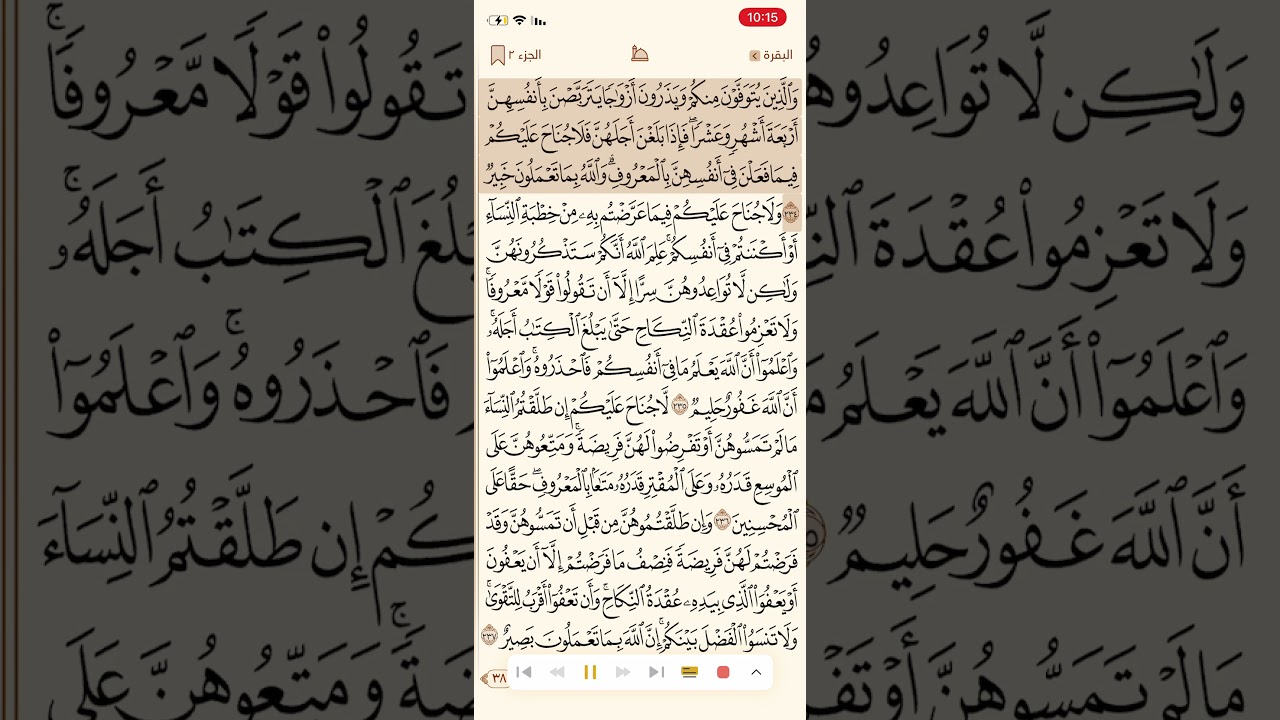 10:15
البقرة
الجزء ٢
وَٱلَّذِينَ يُتَوَفَّوْنَ مِنكُمْ وَيَذَرُونَ أَزْوَٰجًا يَتَرَبَّصْنَ بِأَنفُسِهِنَّ
أَرْبَعَةَ أَشْهُرٍ وَعَشْرًا ۖ فَإِذَا بَلَغْنَ أَجَلَهُنَّ فَلَا جُنَاحَ عَلَيْكُمْ
فِيمَا فَعَلْنَ فِىٓ أَنفُسِهِنَّ بِٱلْمَعْرُوفِ ۗ وَٱللَّهُ بِمَا تَعْمَلُونَ خَبِيرٌ
٢٣٤ وَلَا جُنَاحَ عَلَيْكُمْ فِيمَا عَرَّضْتُم بِهِۦ مِنْ خِطْبَةِ ٱلنِّسَآءِ
أَوْ أَكْنَنتُمْ فِىٓ أَنفُسِكُمْ ۚ عَلِمَ ٱللَّهُ أَنَّكُمْ سَتَذْكُرُونَهُنَّ
وَلَٰكِن لَّا تُوَاعِدُوهُنَّ سِرًّا إِلَّآ أَن تَقُولُوا۟ قَوْلًا مَّعْرُوفًا ۚ
وَلَا تَعْزِمُوا۟ عُقْدَةَ ٱلنِّكَاحِ حَتَّىٰ يَبْلُغَ ٱلْكِتَٰبُ أَجَلَهُۥ ۚ
وَٱعْلَمُوٓا۟ أَنَّ ٱللَّهَ يَعْلَمُ مَا فِىٓ أَنفُسِكُمْ فَٱحْذَرُوهُ ۚ وَٱعْلَمُوٓا۟
أَنَّ ٱللَّهَ غَفُورٌ حَلِيمٌ ٢٣٥ لَّا جُنَاحَ عَلَيْكُمْ إِن طَلَّقْتُمُ ٱلنِّسَآءَ
مَا لَمْ تَمَسُّوهُنَّ أَوْ تَفْرِضُوا۟ لَهُنَّ فَرِيضَةً ۚ وَمَتِّعُوهُنَّ عَلَى
ٱلْمُوسِعِ قَدَرُهُۥ وَعَلَى ٱلْمُقْتِرِ قَدَرُهُۥ مَتَٰعًۢا بِٱلْمَعْرُوفِ ۖ حَقًّا عَلَى
ٱلْمُحْسِنِينَ ٢٣٦ وَإِن طَلَّقْتُمُوهُنَّ مِن قَبْلِ أَن تَمَسُّوهُنَّ وَقَدْ
فَرَضْتُمْ لَهُنَّ فَرِيضَةً فَنِصْفُ مَا فَرَضْتُمْ إِلَّآ أَن يَعْفُونَ
أَوْ يَعْفُوَا۟ ٱلَّذِى بِيَدِهِۦ عُقْدَةُ ٱلنِّكَاحِ ۚ وَأَن تَعْفُوٓا۟ أَقْرَبُ لِلتَّقْوَىٰ ۚ
وَلَا تَنسَوُا۟ ٱلْفَضْلَ بَيْنَكُمْ ۚ إِنَّ ٱللَّهَ بِمَا تَعْمَلُونَ بَصِيرٌ ٢٣٧
٣٨